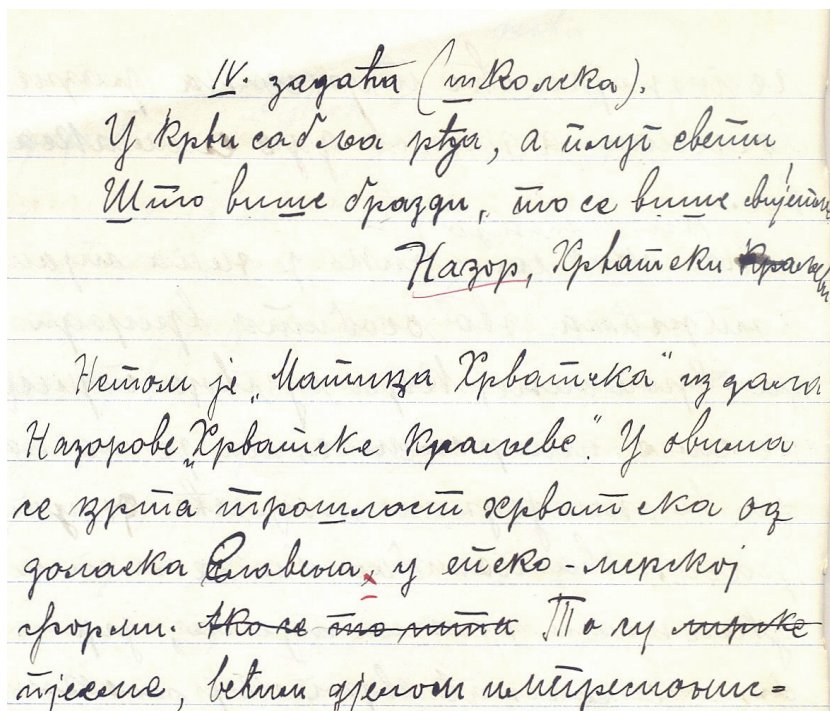 IV. задаћа (школска).
У крви сабља рђа, а плуг свети,
Што више бразди, то се више
Назор, Хрватски
Нетом је „Матица Хрватска“ издала
Назорове „Хрватске краљеве.“ У овима
се црта прошлост хрватска од
доласка Славена, у епско-лирској
форми. Ако се то пита То су лирске
пјесме, већим дјелом импресионис=